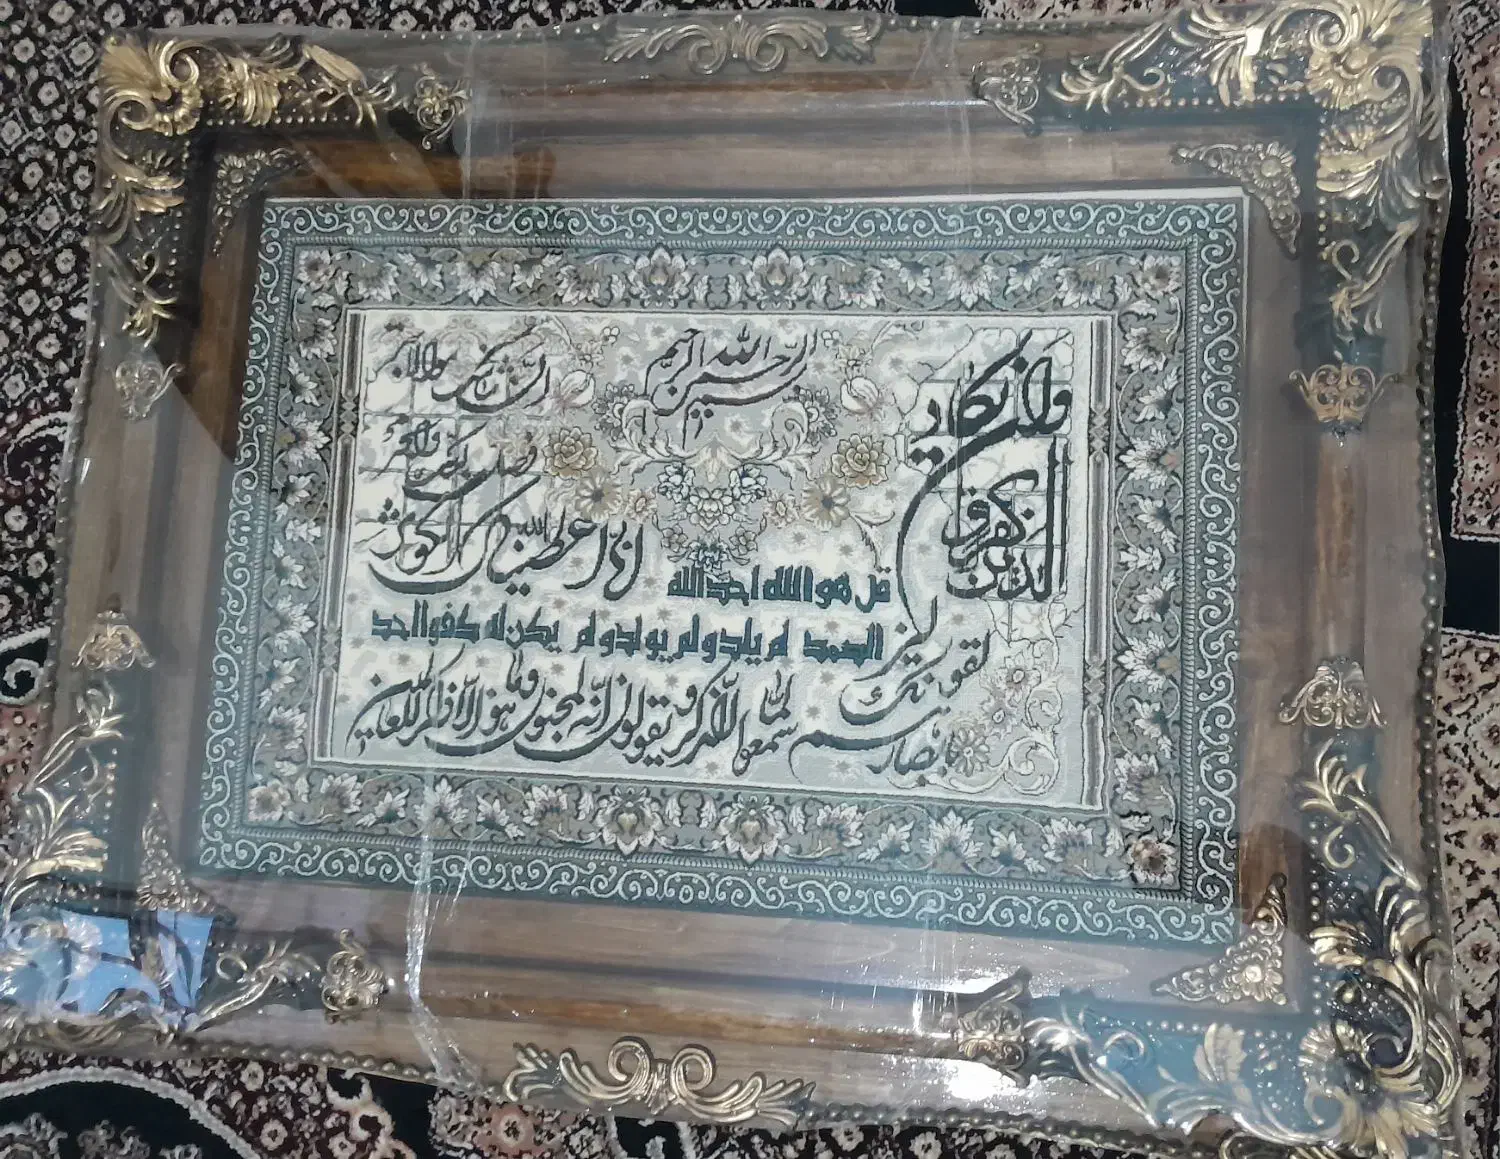 بسم الله الرحمن الرحیم
وان یکاد
الذین کفروا
لیز
لقونک
بابصارهم
لما سمعوا الذکر و یقولون انه لمجنون وما هو الا ذکر للعالمین
انا اعطیناک الکوثر
فصل لربک وانحر
ان شانئک هو الابتر
قل هو الله احد الله
الصمد لم یلد و لم یولد و لم یکن له کفوا احد